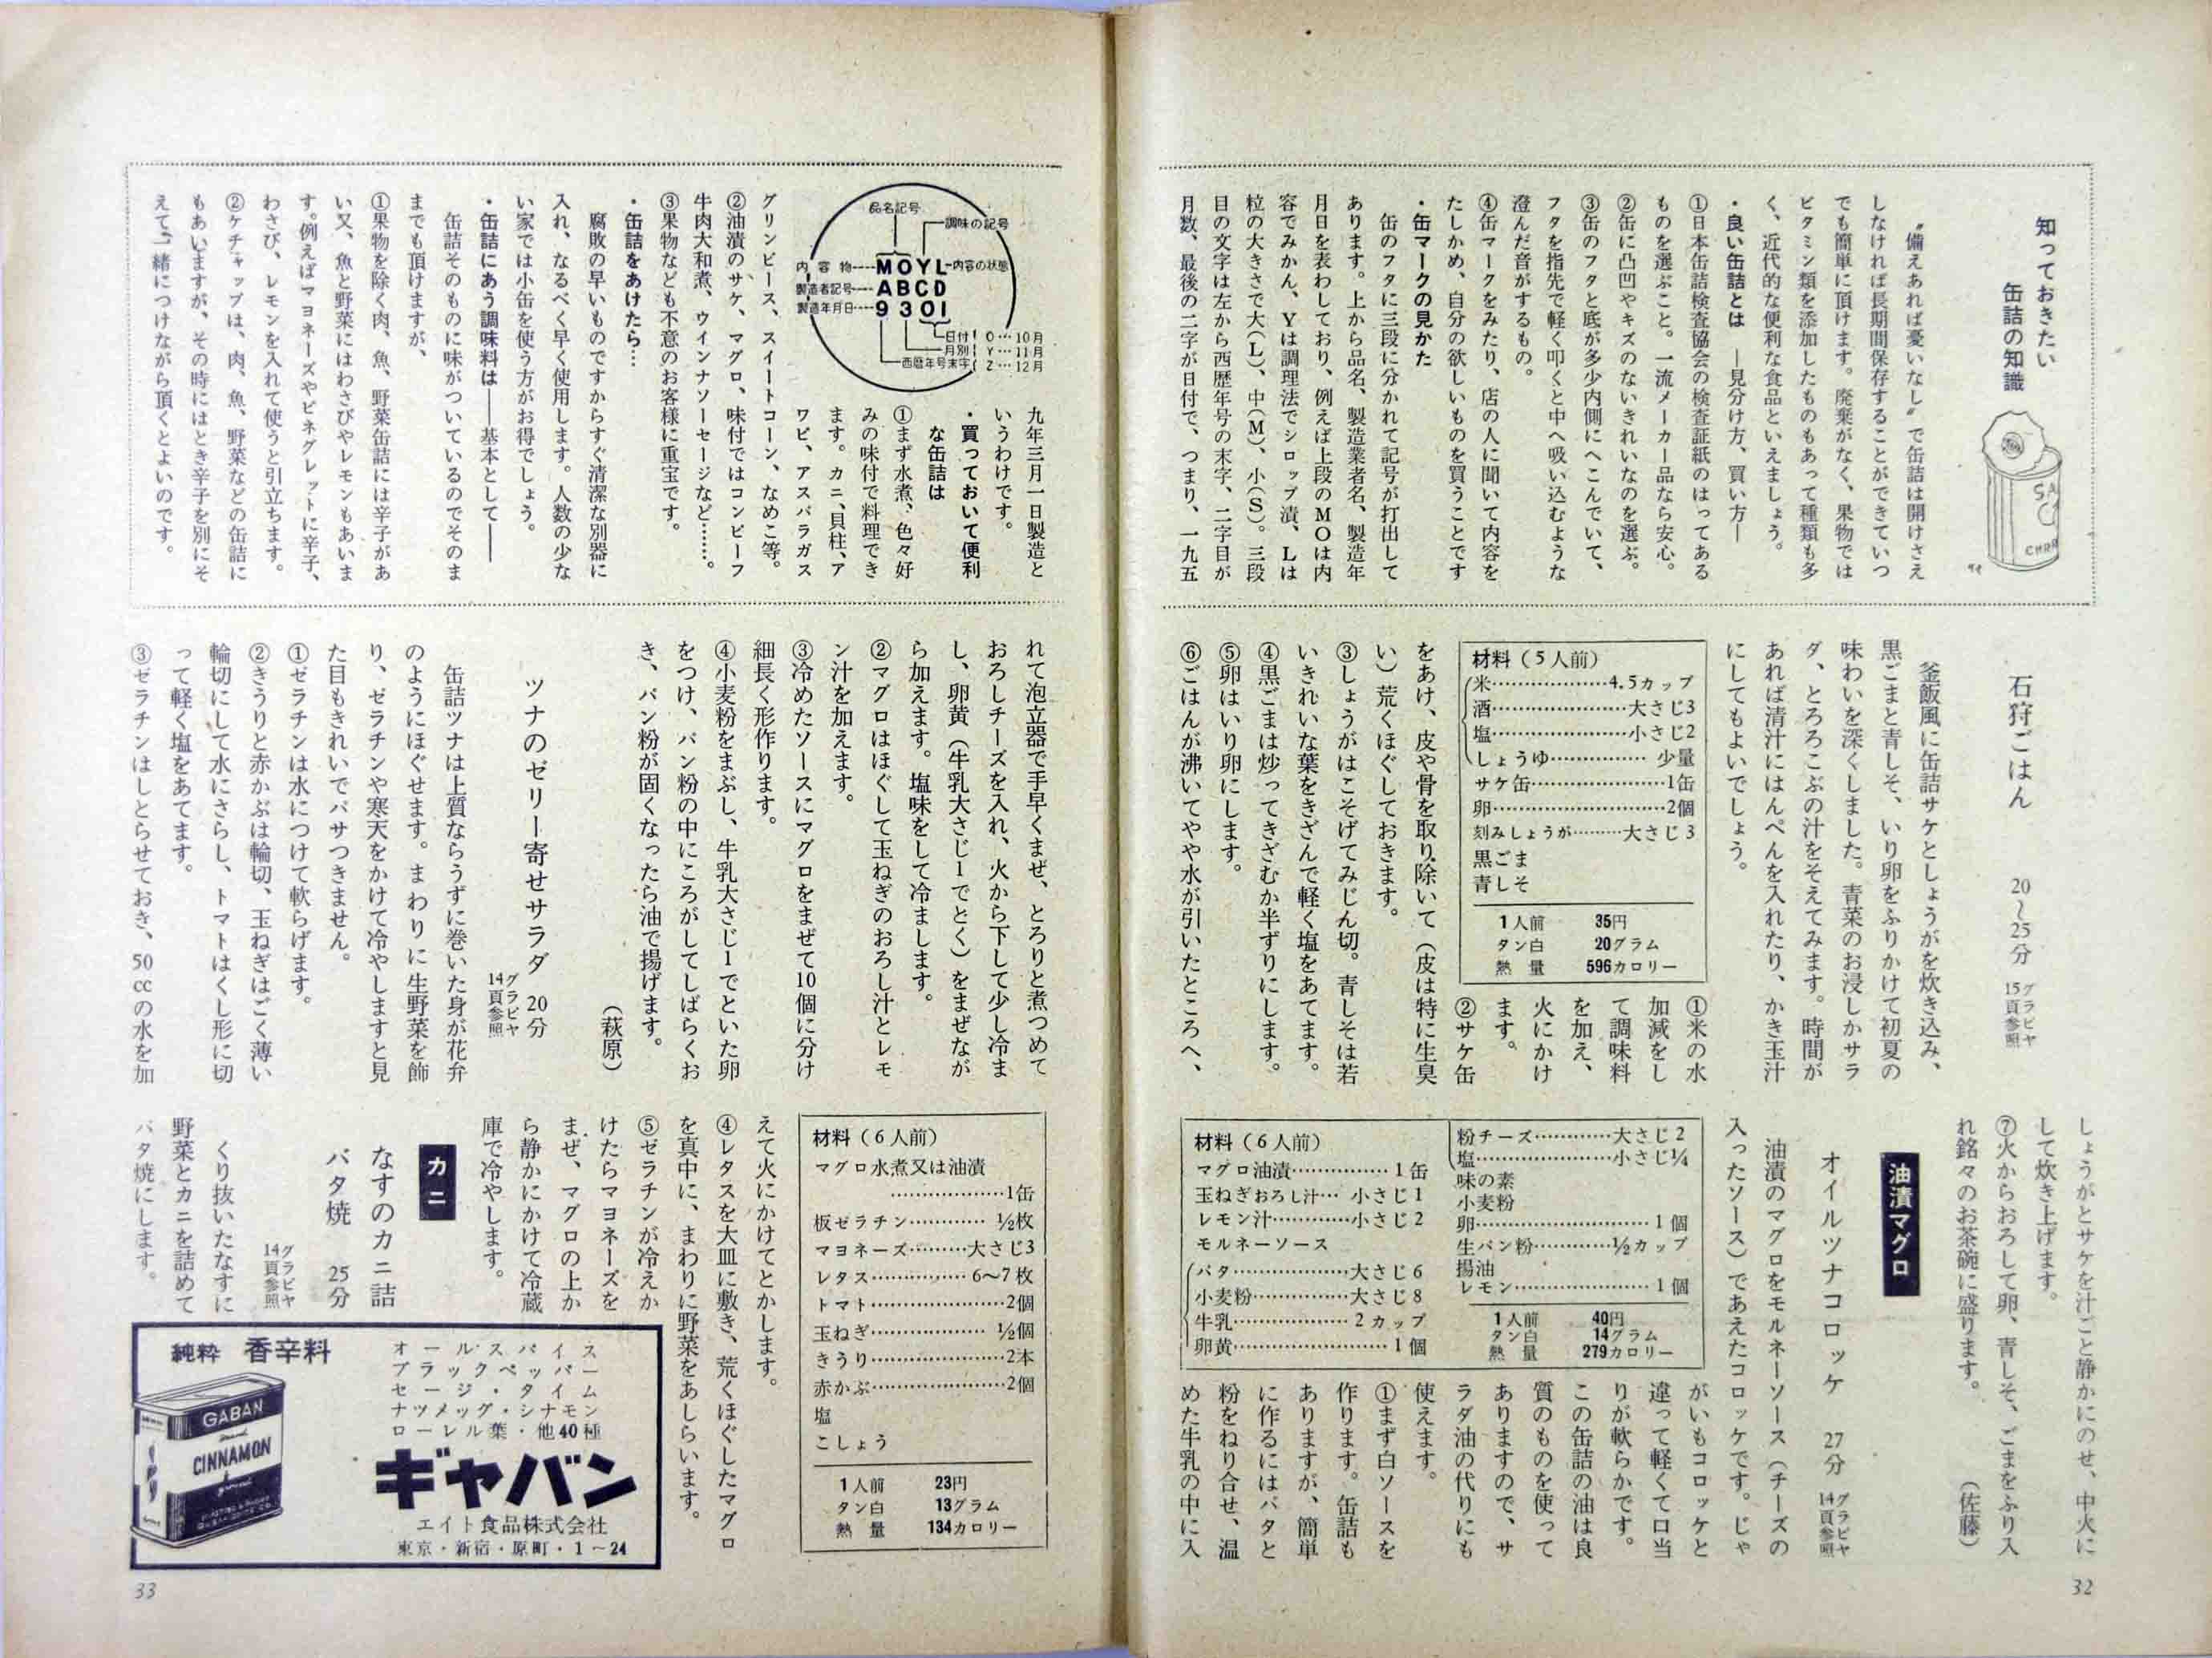 知っておきたい
缶詰の知識
〝備えあれば憂いなし〟で缶詰は開けさえ
しなければ長期間保存することができていつ
でも簡単に頂けます。廃棄がなく、果物では
ビタミン類を添加したものもあって種類も多
く、近代的な便利な食品といえましょう。
・良い缶詰とは ―見分け方、買い方―
①日本缶詰検査協会の検査証紙のはってある
ものを選ぶこと。一流メーカー品なら安心。
②缶に凸凹やキズのないきれいなのを選ぶ。
③缶のフタと底が多少内側にへこんでいて、
フタを指先で軽く叩くと中へ吸い込むような
澄んだ音がするもの。
④缶マークをみたり、店の人に聞いて内容を
たしかめ、自分の欲しいものを買うことです
・缶マークの見かた
缶のフタに三段に分かれて記号が打出して
あります。上から品名、製造業者名、製造年
月日を表わしており、例えば上段のMOは内
容でみかん、Yは調理法でシロップ漬、Lは
粒の大きさで大(L)、中(M)、小(S)。三段
目の文字は左から西歴年号の末字、二字目が
月数、最後の二字が日付で、つまり、一九五
石狩ごはん 20〜25分 グラビヤ15頁参照
釜飯風に缶詰サケとしょうがを炊き込み、
黒ごまと青しそ、いり卵をふりかけて初夏の
味わいを深くしました。青菜のお浸しかサラ
ダ、とろろこぶの汁をそえてみます。時間が
あれば清汁にはんぺんを入れたり、かき玉汁
にしてもよいでしょう。
材料(5人前)
米………………4.5カップ
酒…………………大さじ3
塩…………………小さじ2
しょうゆ……………少量
サケ缶…………………1缶
卵………………………2個
刻みしょうが………大さじ3
黒ごま
青しそ
1人前 35円
タン白 20グラム
熱量 596カロリー
①米の水
加減をし
て調味料
を加え、
火にかけ
ます。
②サケ缶
をあけ、皮や骨を取り除いて(皮は特に生臭
い)荒くほぐしておきます。
③しょうがはこそげてみじん切。青しそは若
いきれいな葉をきざんで軽く塩をあてます。
④黒ごまは炒ってきざむか半ずりにします。
⑤卵はいり卵にします。
⑥ごはんが沸いてやや水が引いたところへ、
しょうがとサケを汁ごと静かにのせ、中火に
して炊き上げます。
⑦火からおろして卵、青しそ、ごまをふり入
れ銘々のお茶碗に盛ります。 (佐藤)
油漬マグロ
オイルツナコロッケ 27分 グラビヤ14頁参照
油漬のマグロをモルネーソース(チーズの
入ったソース)であえたコロッケです。じゃ
がいもコロッケと
違って軽くて口当
りが軟らかです。
この缶詰の油は良
質のものを使って
ありますので、サ
ラダ油の代りにも
使えます。
①まず白ソースを
作ります。缶詰も
ありますが、簡単
に作るにはバタと
粉をねり合せ、温
めた牛乳の中に入
材料(6人前)
マグロ油漬……………1缶
玉ねぎおろし汁…小さじ1
レモン汁…………小さじ2
モルネーソース
バタ………………大さじ6
小麦粉……………大さじ8
牛乳………………2カップ
卵黄……………………1個
粉チーズ…………大さじ2
塩…………………小さじ¼
味の素
小麦粉
卵………………………1個
生パン粉…………½カップ
揚油
レモン…………………1個
1人前 40円
タン白 14グラム
熱量 279カロリー
32
品名記号
調味の記号
内容物
MOYL
内容の状態
製造者記号
ABCD
製造年月日
9301
日付
月別
西暦年号末字
O…10月
Y…11月
Z…12月
九年三月一日製造と
いうわけです。
・買っておいて便利
な缶詰は
①まず水煮、色々好
みの味付で料理でき
ます。カニ、貝柱、ア
ワビ、アスパラガス
グリンピース、スイートコーン、なめこ等。
②油漬のサケ、マグロ、味付ではコンビーフ
牛肉大和煮、ウインナソーセージなど……。
③果物なども不意のお客様に重宝です。
・缶詰をあけたら…
腐敗の早いものですからすぐ清潔な別器に
入れ、なるべく早く使用します。人数の少な
い家では小缶を使う方がお得でしょう。
・缶詰にあう調味料は――基本として――
缶詰そのものに味がついているのでそのま
までも頂けますが、
①果物を除く肉、魚、野菜缶詰には辛子があ
い又、魚と野菜にはわさびやレモンもあいま
す。例えばマヨネーズやビネグレットに辛子、
わさび、レモンを入れて使うと引立ちます。
②ケチャップは、肉、魚、野菜などの缶詰に
もあいますが、その時にはとき辛子を別にそ
えて一緒につけながら頂くとよいのです。
れて泡立器で手早くまぜ、とろりと煮つめて
おろしチーズを入れ、火から下して少し冷ま
し、卵黄(牛乳大さじ1でとく)をまぜなが
ら加えます。塩味をして冷まします。
②マグロはほぐして玉ねぎのおろし汁とレモ
ン汁を加えます。
③冷めたソースにマグロをまぜて10個に分け
細長く形作ります。
④小麦粉をまぶし、牛乳大さじ1でといた卵
をつけ、パン粉の中にころがしてしばらくお
き、パン粉が固くなったら油で揚げます。
(萩原)
ツナのゼリー寄せサラダ 20分
グラビヤ14頁参照
缶詰ツナは上質ならうずに巻いた身が花弁
のようにほぐせます。まわりに生野菜を飾
り、ゼラチンや寒天をかけて冷やしますと見
た目もきれいでパサつきません。
①ゼラチンは水につけて軟らげます。
②きうりと赤かぶは輪切、玉ねぎはごく薄い
輪切にして水にさらし、トマトはくし形に切
って軽く塩をあてます。
③ゼラチンはしとらせておき、50ccの水を加
えて火にかけてとかします。
④レタスを大皿に敷き、荒くほぐしたマグロ
を真中に、まわりに野菜をあしらいます。
⑤ゼラチンが冷えか
けたらマヨネーズを
まぜ、マグロの上か
ら静かにかけて冷蔵
庫で冷やします。
材料(6人前)
マグロ水煮又は油漬
………………1缶
板ゼラチン…………½枚
マヨネーズ………大さじ3
レタス……………6〜7枚
トマト…………………2個
玉ねぎ………………½個
きうり…………………2本
赤かぶ…………………2個
塩
こしょう
1人前 23円
タン白 13グラム
熱量 134カロリー
カニ
なすのカニ詰
バタ焼 25分
グラビヤ14頁参照
くり抜いたなすに
野菜とカニを詰めて
バタ焼にします。
純粋 香辛料
オールスパイス
ブラックペッパー
セージ・タイム
ナツメッグ・シナモン
ローレル葉・他40種
ギャバン
エイト食品株式会社
東京・新宿・原町・1〜24
GABAN
CINNAMON
33